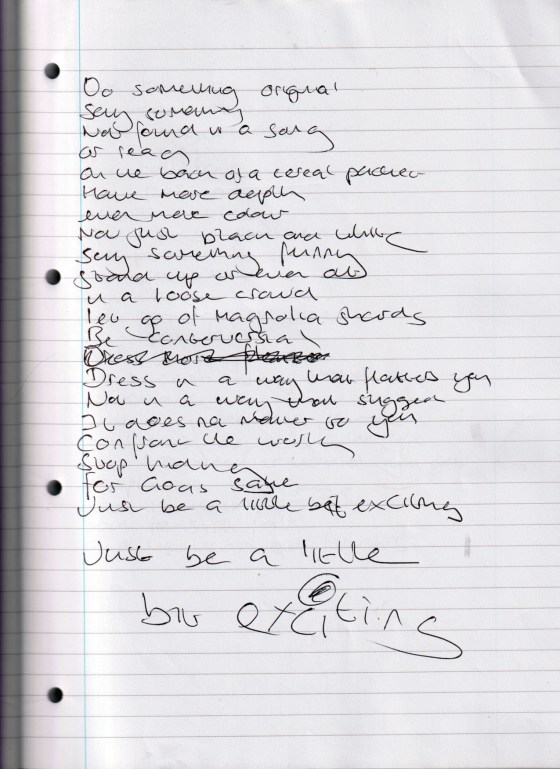 Do something original
Say something
Not found in a song
or read
on the back of a cereal packet
Have more depth
even more colour
Not just black and white
Say something funny
stand up or even
in a loose crowd
let go of Magnolia shards
Be controversial
Dress more
Dress in a way that flatters you
Not in a way that suggest
It does not matter to you
Confront the world
Stop hiding
for Gods sake
Just be a little bit exciting
Just be a little
bit exciting